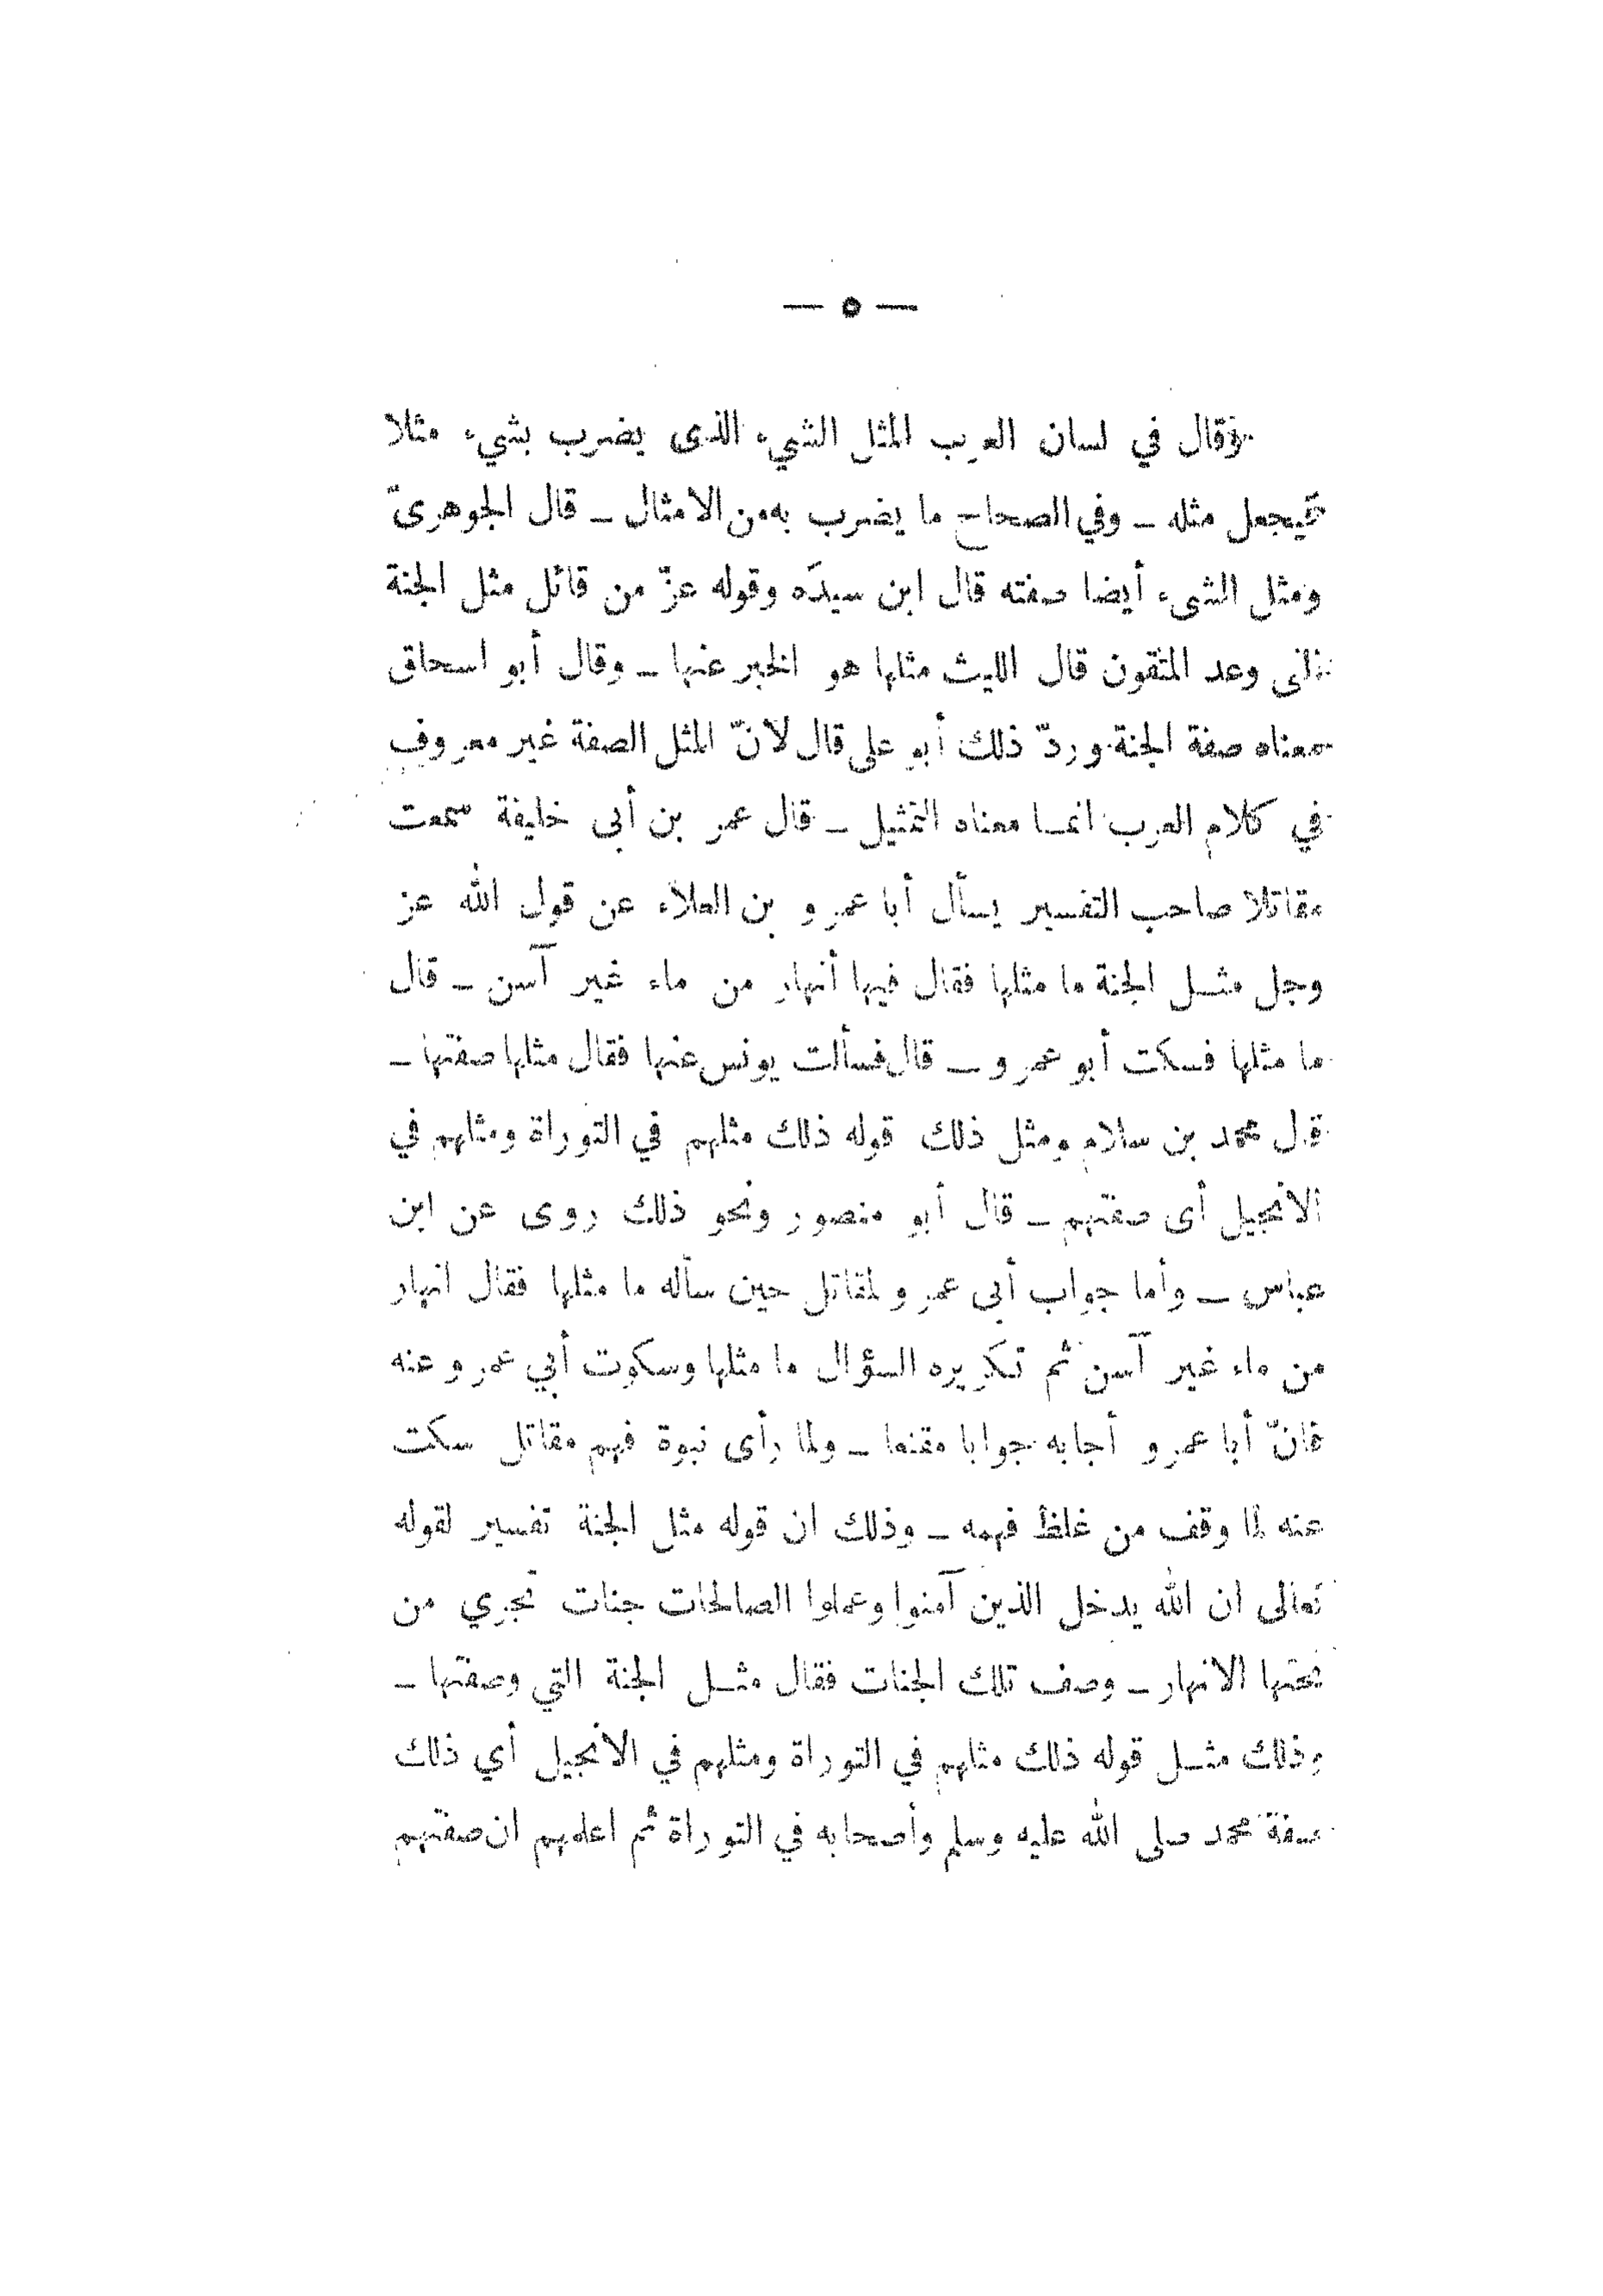 — ٥ —
وقال في لسان العرب المثل الشيء الذى يضرب بشيء مثلا
فيجعل مثله ــ وفي الصحاح ما يضرب به من الامثال ــ قال الجوهرىّ
ومثل الشىء أيضا صفته قال ابن سيدَه وقوله عزّ من قائل مثل الجنة
التى وعد المتقون قال الليث مثلها هو الخبر عنها ــ وقال أبو اسحاق
معناه صفة الجنة وردّ ذلك أبو على قال لانّ المثل الصفة غير معروف
في كلام العرب انما معناه التمثيل ــ قال عمر بن أبى خليفة سمعت
مقاتلا صاحب التفسير يسأل أبا عمرو بن العلاء عن قول الله عز
وجل مثل الجنة ما مثلها فقال فيها أنهار من ماء غير آسن ــ قال
ما مثلها فسكت أبو عمرو ــ قال فسألت يونس عنها فقال مثلها صفتها ــ
قال محمد بن سلام ومثل ذلك قوله ذلك مثلهم في التوراة ومثلهم في
الانجيل أى صفتهم ــ قال أبو منصور ونحو ذلك روى عن ابن
عباس ــ وأما جواب أبى عمرو لمقاتل حين سأله ما مثلها فقال انهار
من ماء غير آسن ثم تكريره السؤال ما مثلها وسكوت أبي عمرو عنه
فانّ أبا عمرو أجابه جوابا مقنعا ــ ولما رأى نبوة فهم مقاتل سكت
عنه لما وقف من غلظ فهمه ــ وذلك ان قوله مثل الجنة تفسير لقوله
تعالى ان الله يدخل الذين آمنوا وعملوا الصالحات جنات تجري من
تحتها الانهار ــ وصف تلك الجنات فقال مثل الجنة التي وصفتها ــ
وذلك مثل قوله ذلك مثلهم في التوراة ومثلهم في الانجيل أي ذلك
صفة محمد صلى الله عليه وسلم وأصحابه في التوراة ثم اعلمهم ان صفتهم